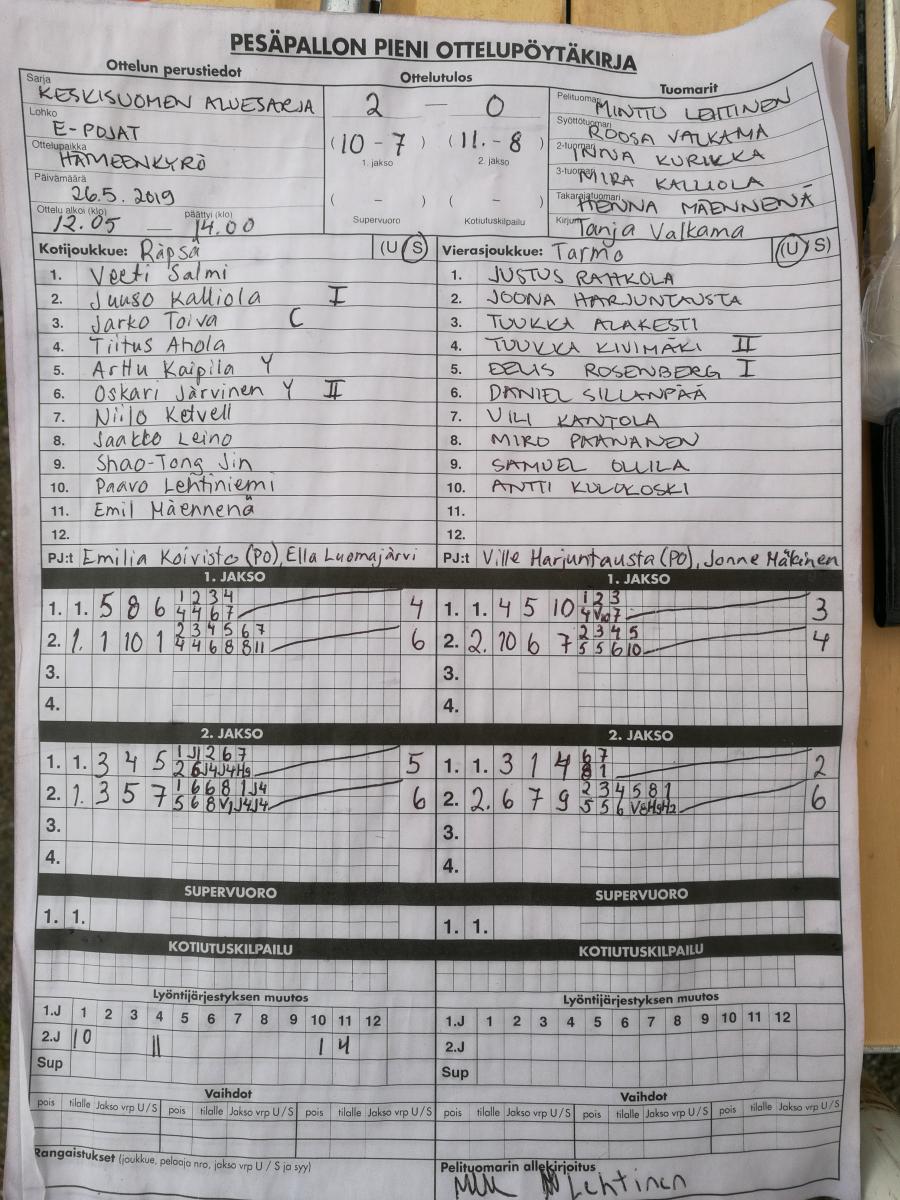 PESÄPALLON PIENI OTTELUPÖYTÄKIRJA
Ottelun perustiedot
Sarja
KESKISUOMEN ALUESARJA
Lohko
E-POJAT
Ottelupaikka
HÄMEENKYRÖ
Päivämäärä
26.5. 2019
Ottelu alkoi (klo) päättyi (klo)
12.05 — 14.00
Ottelutulos
2 — 0
(10 - 7) (11. - 8)
1. jakso 2. jakso
( - ) ( - )
Supervuoro Kotiutuskilpailu
Tuomarit
Pelituomari MINTTU LEHTINEN
Syöttötuomari ROOSA VALKAMA
2-tuomari INNA KURIKKA
3-tuomari MIRA KALLIOLA
Takarajatuomari HENNA MÄENNENÄ
Kirjuri Tanja Valkama
Kotijoukkue: Räpsä (U S)
1. Veeti Salmi
2. Juuso Kalliola I
3. Jarko Toiva C
4. Tiitus Ahola
5. Arttu Kaipila Y
6. Oskari Järvinen Y II
7. Niilo Ketvell
8. Jaakko Leino
9. Shao-Tong Jin
10. Paavo Lehtiniemi
11. Emil Mäennenä
12.
PJ:t Emilia Koivisto (PO), Ella Luomajärvi
Vierasjoukkue: Tarmo (U S)
1. JUSTUS RAHKOLA
2. JOONA HARJUNTAUSTA
3. TUUKKA ALAKESTI
4. TUUKKA KIVIMÄKI II
5. EELIS ROSENBERG I
6. DANIEL SILLANPÄÄ
7. VILI KANTOLA
8. MIRO PAANANEN
9. SAMUEL OLLILA
10. ANTTI KULOKOSKI
11.
12.
PJ:t Ville Harjuntausta (PO), Jonne Mäkinen
1. JAKSO
1. 1. 5 8 6 1 2 3 4 4
4 4 6 7
2. 1. 1 10 1 2 3 4 5 6 7 6
4 4 6 8 8 11
3.
4.
1. JAKSO
1. 1. 4 5 10 1 2 3 3
4 V10 7
2. 2. 10 6 7 2 3 4 5 4
5 5 6 10
3.
4.
2. JAKSO
1. 1. 3 4 5 1 J1 2 6 7 5
2 6 J4 J4 H9
2. 1. 3 5 7 1 6 6 8 1 J4 6
5 6 8 V1 J4 J4
3.
4.
2. JAKSO
1. 1. 3 1 4 6 7 2
8 1
2. 2. 6 7 9 2 3 4 5 8 1 6
5 5 6 V8 H9 H2
3.
4.
SUPERVUORO
1. 1.
SUPERVUORO
1. 1.
KOTIUTUSKILPAILU
KOTIUTUSKILPAILU
Lyöntijärjestyksen muutos
1.J 1 2 3 4 5 6 7 8 9 10 11 12
2.J 10 11 1 4
Sup
Lyöntijärjestyksen muutos
1.J 1 2 3 4 5 6 7 8 9 10 11 12
2.J
Sup
Vaihdot
pois tilalle Jakso vrp U / S pois tilalle Jakso vrp U / S pois tilalle Jakso vrp U / S
Vaihdot
pois tilalle Jakso vrp U / S pois tilalle Jakso vrp U / S pois tilalle Jakso vrp U / S
Rangaistukset (joukkue, pelaaja nro, jakso vrp U / S ja syy)
Pelituomarin allekirjoitus
Lehtinen